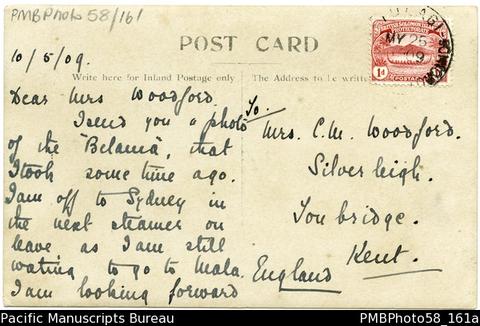 PMBPhoto 58/161
TULAGI
MY 25
09
BRITISH SOLOMON ISLANDS
PROTECTORATE
1d POSTAGE 1d
POST CARD
10/5/09.
Write here for Inland Postage only
The Address to be written
Dear Mrs Woodford.
I send you a photo
of the "Belama", that
I took some time ago.
I am off to Sydney in
the next steamer on
leave as I am still
waiting to go to Mala.
I am looking forward
To.
Mrs. C.M. Woodford.
Silverleigh.
Tonbridge.
Kent.
England
Pacific Manuscripts Bureau
PMBPhoto58_161a